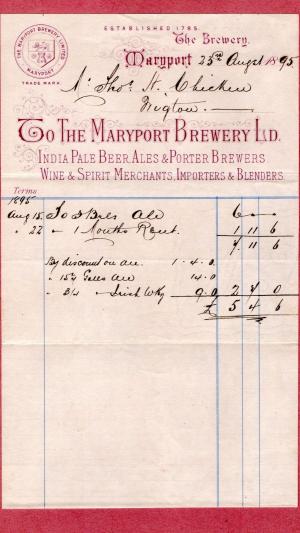 ESTABLISHED 1785.
THE MARYPORT BREWERY LIMITED
MARYPORT
TRADE MARK.
The Brewery,
Maryport 23rd Augst 1895
Mr Thos. H.
Wigton.
To THE MARYPORT BREWERY LD.
INDIA PALE BEER, ALES & PORTER BREWERS.
WINE & SPIRIT MERCHANTS, IMPORTERS & BLENDERS.
Terms
1895
Aug 15 To Bls Ale 6 — —
" 22 " 1 Months Rent. 1 11 6
7 11 6
By discount on ale. 1 . 4 . 0
" Galls Ale 14.0
" 3/4 " Irish Wky 9.0 2 7 0
£ 5 4 6